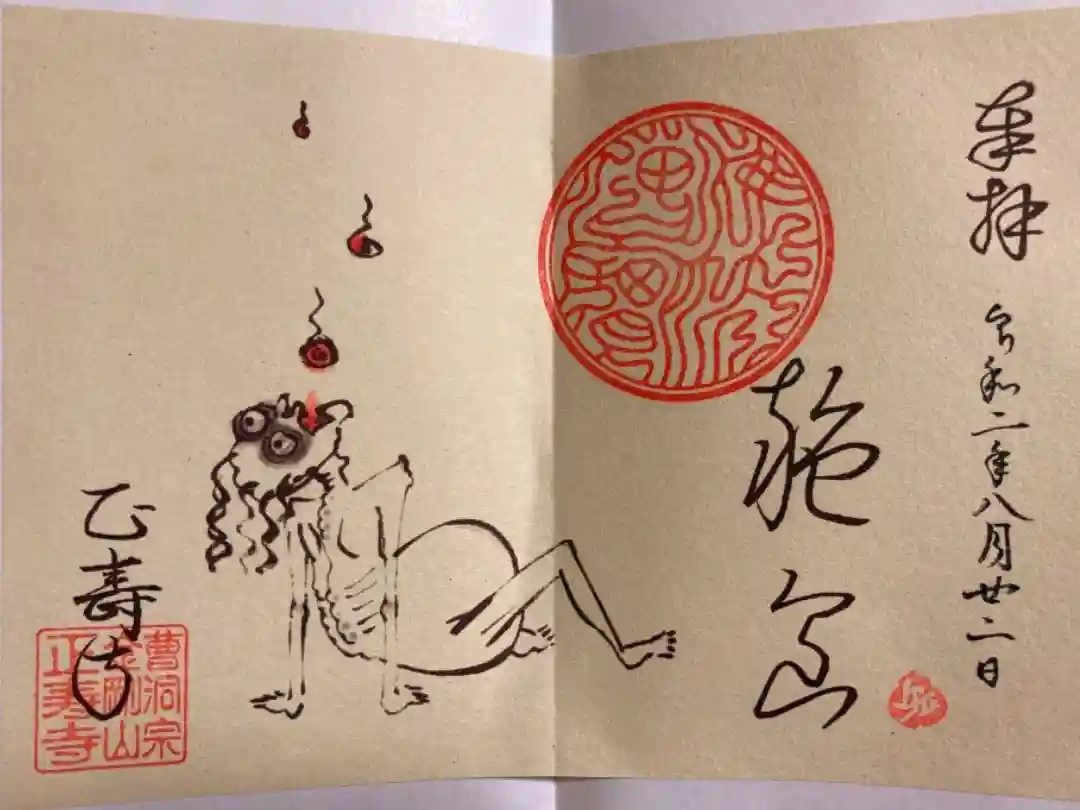 奉拝
令和二年八月廿二日
施食
正壽寺
曹洞宗
金剛山
正壽寺